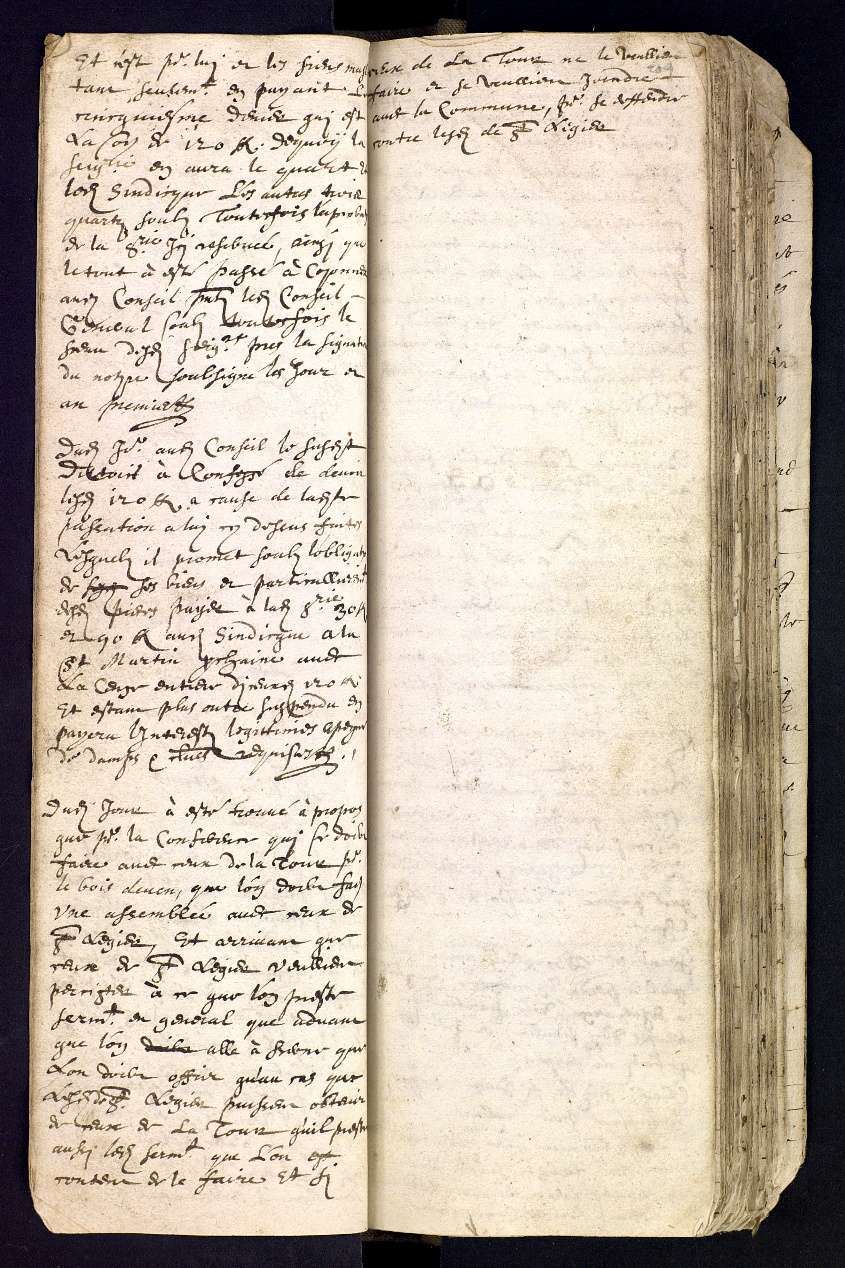 Et c'est pr. luy et les siens masl
tant seulemt. en payant Le
cinquiesme denier qui est
La som̃e de 120 ff. dequoy la
seigrie en aura le quart et
ledt Sindicque Les autres trois
quarts soubs Touttesfois laprobaõn
de la Srie Icy reservée, ainsi que
le tout à esté passé à Coponnex
audt Conseil pnts ledt Conseil
General soubs touttesfois le
sceau desdts seigrs pres la signature
du notre soubsigné les Jour et
an premier
Dudt Jr. audt Conseil le susdt
Ductoit à Confessé de devoir
lesdts 120 ff. a cause de ladte
passation a luy cy dessus faitte
Lesquels il promet soubs lobligaõn
de ses biens et particullieremt
desdtes pieces payer à ladte Srie 30 ff
et 90 ff audt Sindicque a la
St Martin prchaine avec
La Cense entiere desdts 120 ff.
Et estant plus outre suspendu en
payera L'interest legittimes a peyne
de damps & clauses requises
Dudt Jour à esté trouvé à propos
que pr. la Conference qui se doibt
faire avec ceux de la Tour pr.
le bois deven, que l'on doibt faire
Vne assemblée avec ceux de
St Legier, Et arrivant que
ceux de St Legier veullient
percister à ce que l'on preste
sermt. en general que advant
que l'on alle à serment que
L'on doibt offrir qu'au cas que
Lesdts de St. Legier puissent obtenir
de ceux de La Tour qu'il prestent
aussi ledt sermt que L'on est
content de le faire Et si
ceux de La Tour ne le veullient
faire et se veullient Joindre
avec la Commune, pr. se deffendre
contre lesdts de St Legier